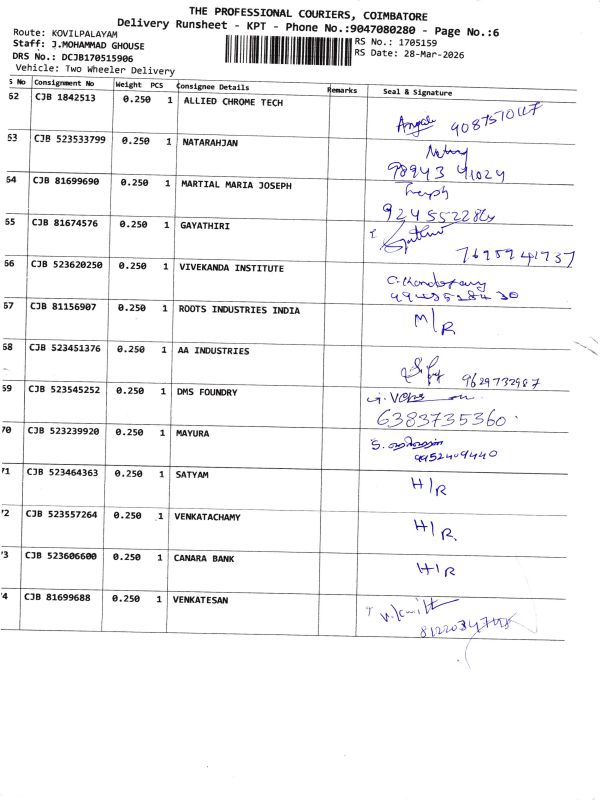 THE PROFESSIONAL COURIERS, COIMBATORE
Delivery Runsheet - KPT - Phone No.:9047080280 - Page No.:6
Route: KOVILPALAYAM
Staff: J.MOHAMMAD GHOUSE
RS No.: 1705159
DRS No.: DCJB170515906
RS Date: 28-Mar-2026
Vehicle: Two Wheeler Delivery
S No Consignment No Weight PCS Consignee Details Remarks Seal & Signature
62 CJB 1842513 0.250 1 ALLIED CHROME TECH
63 CJB 523533799 0.250 1 NATARAHJAN
98943 41024
64 CJB 81699690 0.250 1 MARTIAL MARIA JOSEPH
65 CJB 81674576 0.250 1 GAYATHIRI
66 CJB 523620250 0.250 1 VIVEKANDA INSTITUTE
67 CJB 81156907 0.250 1 ROOTS INDUSTRIES INDIA M/R
68 CJB 523451376 0.250 1 AA INDUSTRIES
9629732987
69 CJB 523545252 0.250 1 DMS FOUNDRY
6383735360
70 CJB 523239920 0.250 1 MAYURA
9952409440
71 CJB 523464363 0.250 1 SATYAM H/R
72 CJB 523557264 0.250 1 VENKATACHAMY H/R
73 CJB 523606600 0.250 1 CANARA BANK H/R
74 CJB 81699688 0.250 1 VENKATESAN